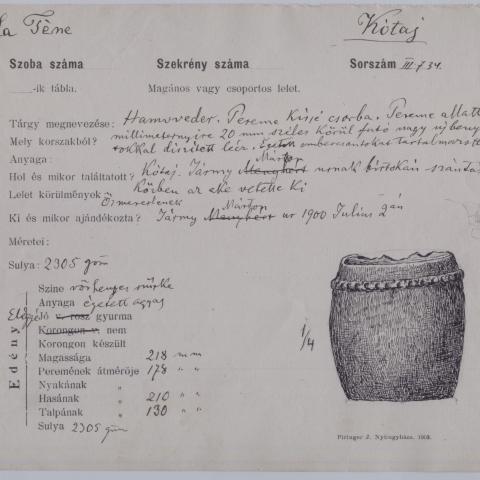 La Tène
Kótaj
Szoba száma
Szekrény száma
Sorszám III.734.
-ik tábla.
Magános vagy csoportos lelet.
Tárgy megnevezése: Hamvveder. Pereme kissé csorba. Pereme alatt
Mely korszakból? milliméternyire 20 mm széles körül futó nagy ujjbenyo-
Anyaga: tokkal díszített léc. Égetett embercsontokat tartalmazott
Hol és mikor találtatott? Kótaj. Jármy Menyhért Márton urnak birtokán szántás
Lelet körülmények közben az eke vetette ki
Őismeretlenek
Ki és mikor ajándékozta? Jármy Menyhért Márton ur 1900 Julius 2án
Méretei:
Sulya: 2305 gm
Edény
Szine vörhenyes szürke
Anyaga égetett agyag
Eléggé Jó v. rosz gyurma
Korongon v. nem
Korongon készült
Magassága 218 mm
Peremének átmérője 178 " "
Nyakának "
Hasának " 210 " "
Talpának " 130 " "
Sulya 2305 gm
1/4
Piringer J. Nyiregyháza, 1903.